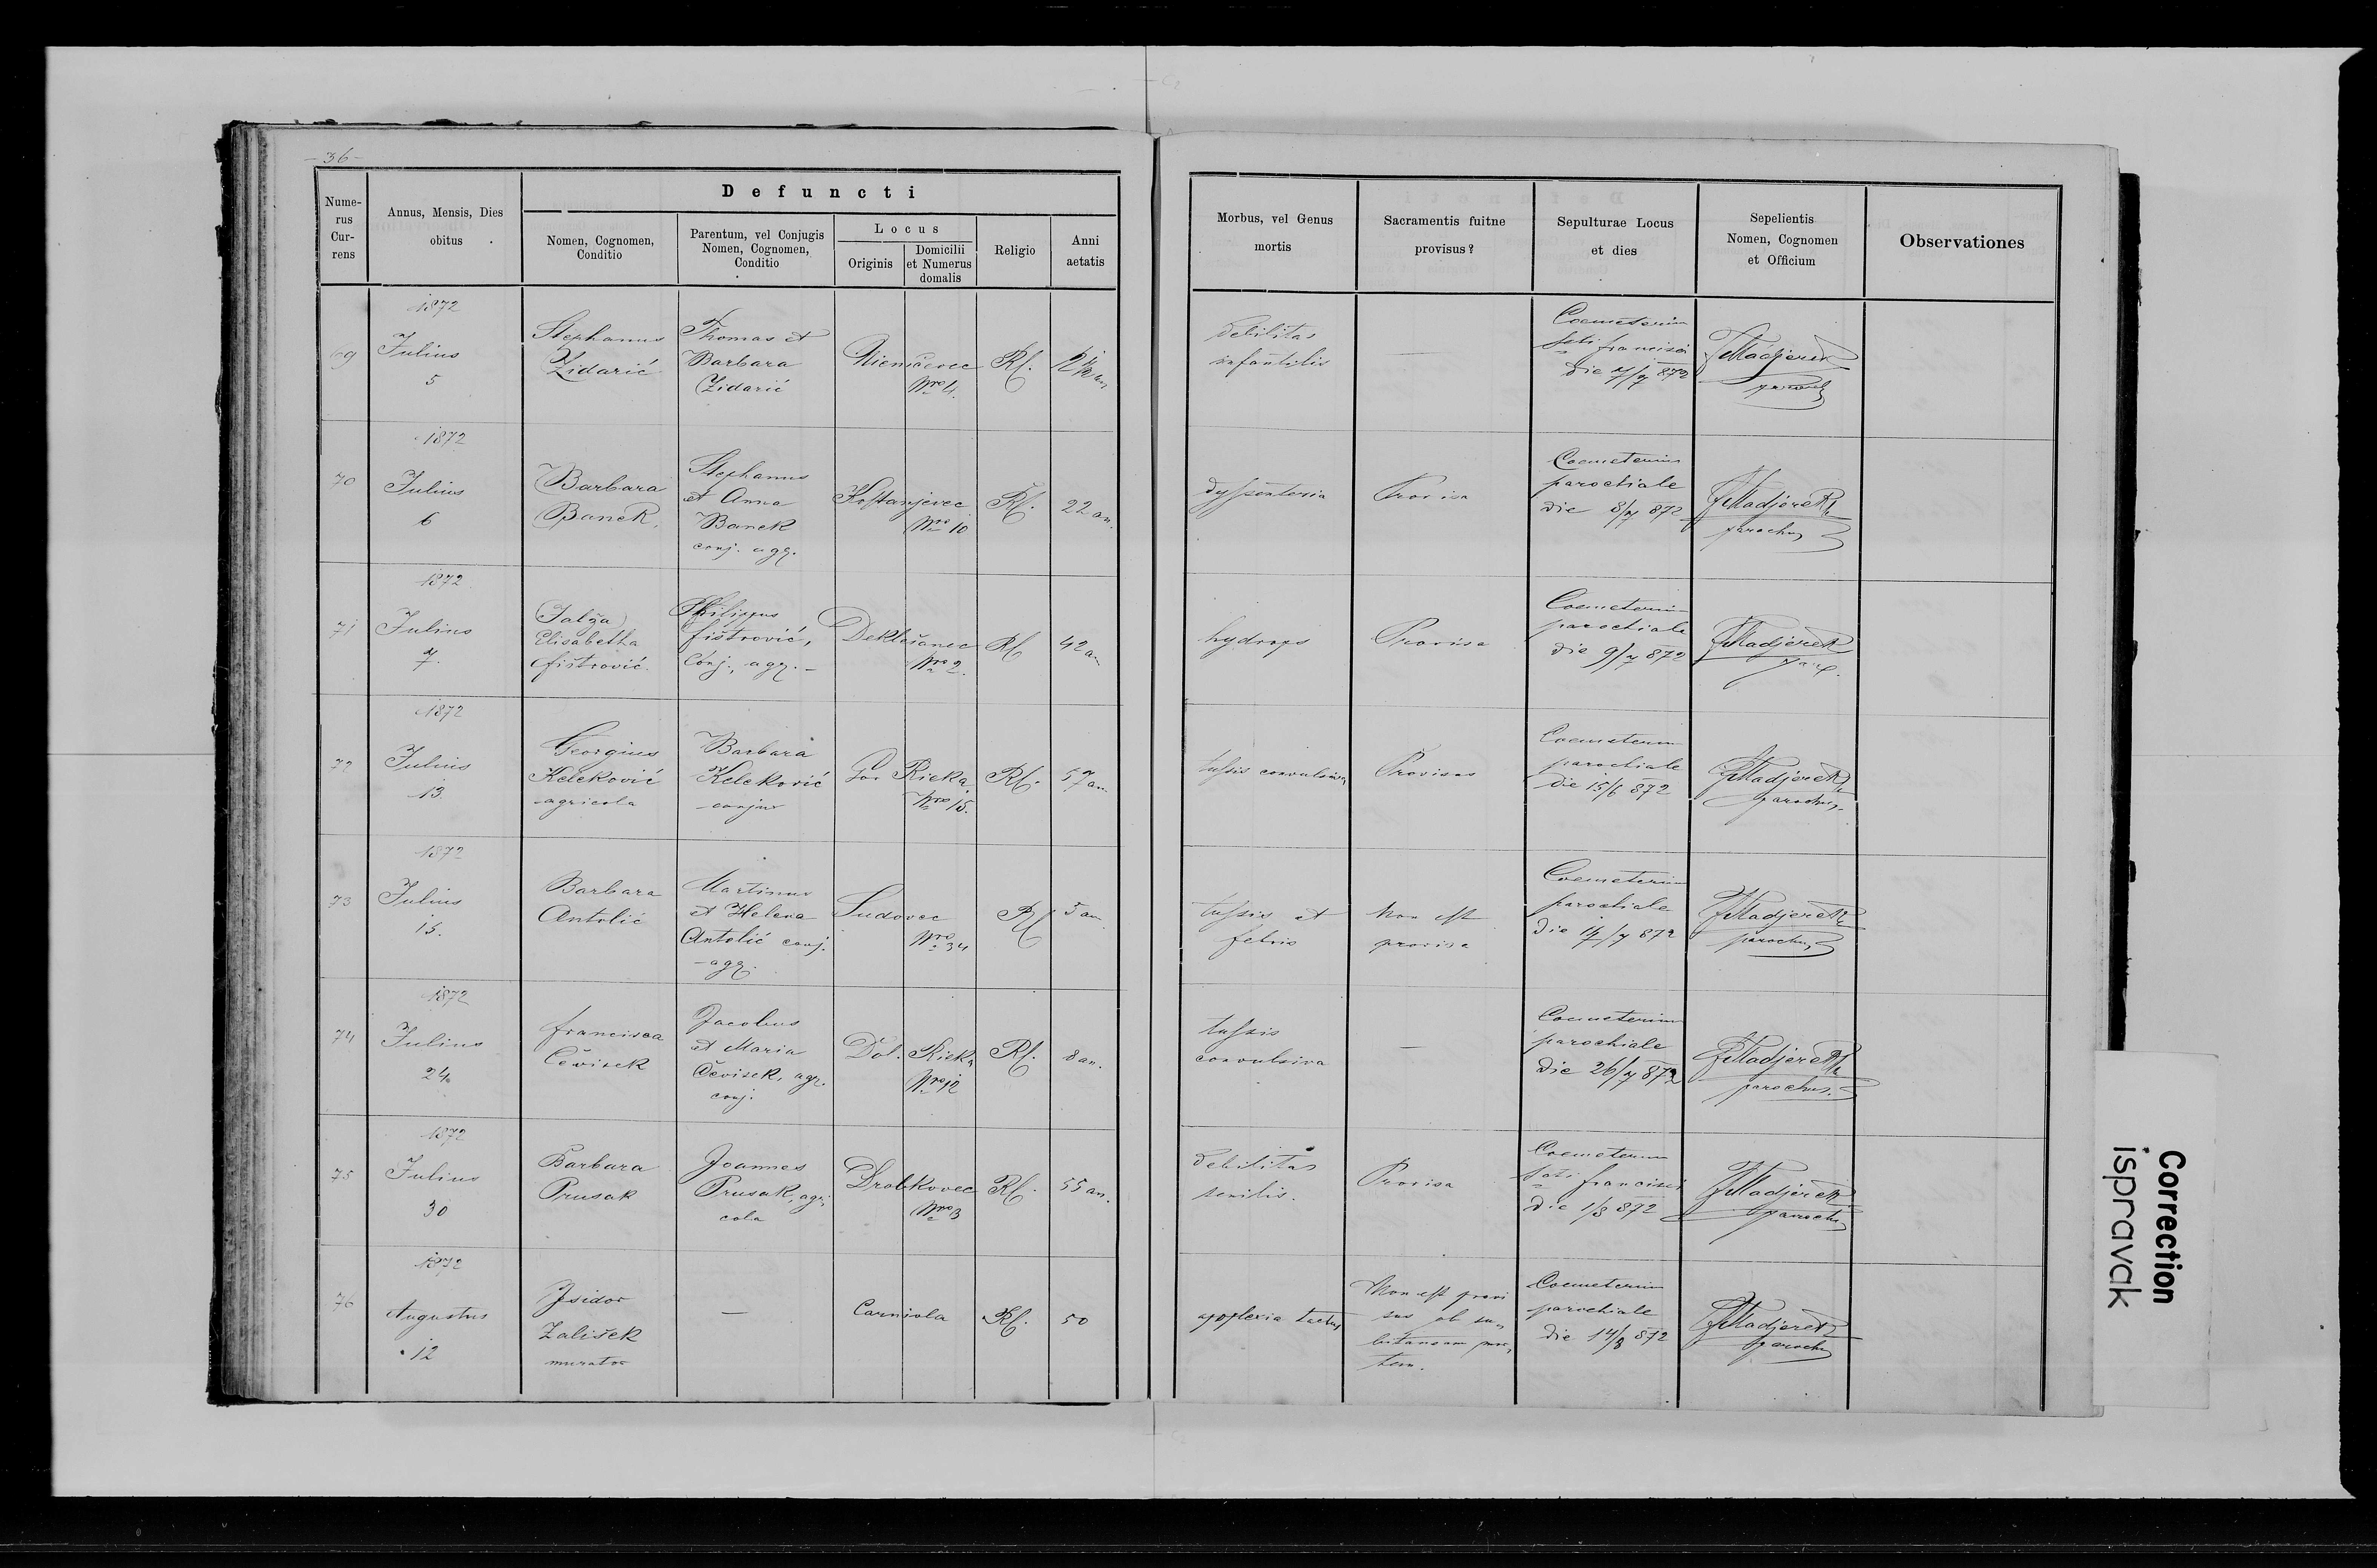 -36-
Defuncti
Nume-
rus
Cur-
rens
Annus, Mensis, Dies
obitus
Nomen, Cognomen,
Conditio
Parentum, vel Conjugis
Nomen, Cognomen,
Conditio
Locus
Originis
Domicilii
et Numerus
domalis
Religio
Anni
aetatis
Morbus, vel Genus
mortis
Sacramentis fuitne
provisus?
Sepulturae Locus
et dies
Sepelientis
Nomen, Cognomen
et Officium
Observationes
69
1872
Julius
5
Stephanus
Zidarić
Thomas et
Barbara
Zidarić
Niemčevec
Nro 4.
Rk.
debilitas
infantilis
—
Coemeterium
Sti francisci
die 7/7 872
Madjerek
70
1872
Julius
6
Barbara
Banek
Stephanus
et Anna
Banek
conj. agr.
Kostanjevec
Nro 10
Rk.
22 an.
dyssenteria
Provisa
Coemeterium
parochiale
die 8/7 872
Madjerek
parochus
71
1872
Julius
7.
Jalža
Elisabetha
fištrović
Philippus
fištrović,
Conj., agr. -
Deklešanec
Nro 2.
Rk
42 an
hydrops
Provisa
Coemeterium
parochiale
die 9/7 872
Madjerek
72
1872
Julius
13
Georgius
Keleković
agricola
Barbara
Keleković
conjux
Gor Rieka
Nro 15.
Rk.
57 an
tussis convulsiva
Provisus
Coemeterium
parochiale
die 15/6 872
Madjerek
parochus
73
1872
Julius
15.
Barbara
Antolić
Martinus
et Helena
Antolić conj.
agr.
Ludovec
Nro 34
Rk
5 an
tussis et
febris
Non est
provisa
Coemeterium
parochiale
die 17/7 872
Madjerek
parochus
74
1872
Julius
24
francisca
Čevisek
Jacobus
et Maria
Čevisek, agr.
conj.
Dol. Rieka
Nro 12
Rk.
8 an.
tussis
convulsiva
—
Coemeterium
parochiale
die 26/7 872
Madjerek
parochus.
75
1872
Julius
30
Barbara
Prusak
Joannes
Prusak, agri
cola
Drobkovec
Nro 3
Rk.
55 an.
debilitas
senilis.
Provisa
Coemeterium
Sti francisci
die 1/8 872
Madjerek
parochus
76
1872
Augustus
12
Isidor
Zališek
murator
—
Carniola
Rk.
50
apoplexia tactus
Non est provi
sus ob su,
bitaneam mor,
tem.
Coemeterium
parochiale
die 14/8 872
Madjerek
parochus
Correction
ispravak